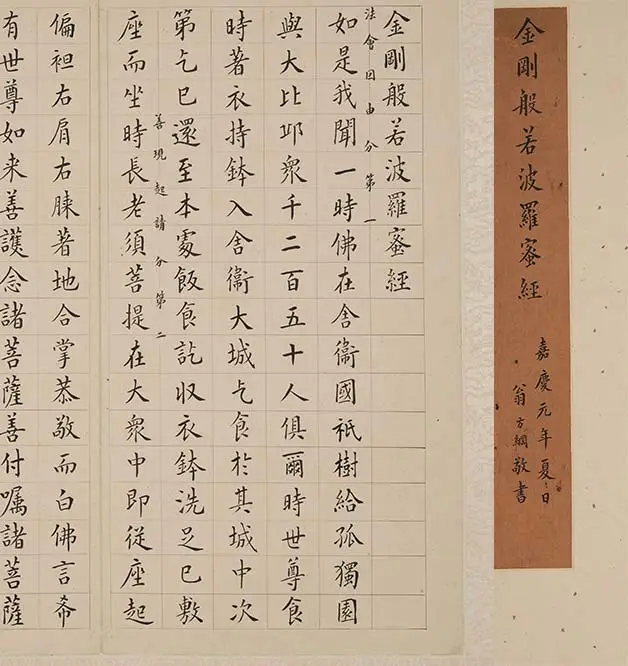 金剛般若波羅蜜經
嘉慶元年夏日
翁方綱敬書
金剛般若波羅蜜經
法會因由分第一
如是我聞一時佛在舍衞國祇樹給孤獨園
與大比邱衆千二百五十人俱爾時世尊食
時著衣持鉢入舍衞大城乞食於其城中次
第乞已還至本處飯食訖收衣鉢洗足已敷
善現起請分第二
座而坐時長老須菩提在大衆中即從座起
偏袒右肩右膝著地合掌恭敬而白佛言希
有世尊如来善護念諸菩薩善付囑諸菩薩